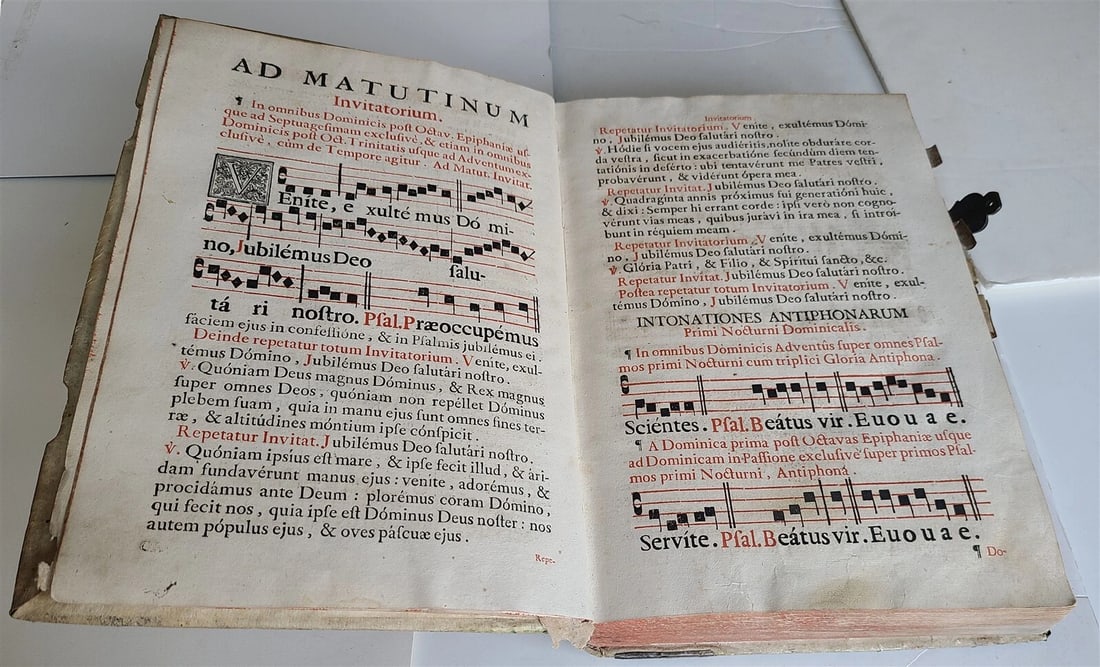 AD MATUTINUM
Invitatorium.
¶ In omnibus Dominicis poſt Octav. Epiphaniæ uſ-
que ad Septuageſimam excluſivè, & etiam in omnibus
Dominicis poſt Oct. Trinitatis uſque ad Adventum ex-
cluſivè, cùm de Tempore agitur. Ad Matut. Invitat.
VEníte, e xulté mus Dó mi-
no, Jubilémus Deo ſalu-
tá ri noſtro. Pſal. Præoccupémus
faciem ejus in confeſſióne, & in Pſalmis jubilémus ei.
Deinde repetatur totum Invitatorium. Veníte, exul-
témus Dómino, Jubilémus Deo ſalutári noſtro.
℣. Quóniam Deus magnus Dóminus, & Rex magnus
ſuper omnes Deos, quóniam non repéllet Dóminus
plebem ſuam, quia in manu ejus ſunt omnes fines ter-
ræ, & altitúdines móntium ipſe cónſpicit.
Repetatur Invitat. Jubilémus Deo ſalutári noſtro.
℣. Quóniam ipsíus eſt mare, & ipſe fecit illud, & ári-
dam fundavérunt manus ejus: veníte, adorémus, &
procidámus ante Deum: plorémus coram Dómino,
qui fecit nos, quia ipſe eſt Dóminus Deus noſter: nos
autem pópulus ejus, & oves páſcuæ ejus.
Repe-
Invitatorium.
Repetatur Invitatorium. Veníte, exultémus Dómi-
no, Jubilémus Deo ſalutári noſtro.
℣. Hódie ſi vocem ejus audiéritis, nolíte obduráre cor-
da veſtra, ſicut in exacerbatióne ſecúndùm diem ten-
tatiónis in deſérto: ubi tentavérunt me Patres veſtri,
probavérunt, & vidérunt ópera mea.
Repetatur Invitat. Jubilémus Deo ſalutári noſtro.
℣. Quadraginta annis próximus fui generatióni huic,
& dixi: Semper hi errant corde: ipſi verò non cogno-
vérunt vias meas, quibus jurávi in ira mea, ſi introí-
bunt in réquiem meam.
Repetatur Invitatorium. Veníte, exultémus Dómi-
no, Jubilémus Deo ſalutári noſtro.
℣. Glória Patri, & Fílio, & Spirítui ſancto, &c.
Repetatur Invitat. Jubilémus Deo ſalutári noſtro.
Poſtea repetatur totum Invitatorium. Veníte, exul-
témus Dómino, Jubilémus Deo ſalutári noſtro.
INTONATIONES ANTIPHONARUM
Primi Nocturni Dominicalis.
¶ In omnibus Dominicis Adventûs ſuper omnes Pſal-
mos primi Nocturni cum triplici Gloria Antiphona.
Sciéntes. Pſal. Beátus vir. Euouae.
¶ A Dominica prima poſt Octavas Epiphaniæ uſque
ad Dominicam in Paſſione excluſivè ſuper primos Pſal-
mos primi Nocturni, Antiphona.
Servíte. Pſal. Beátus vir. Euouae.
¶ Do-